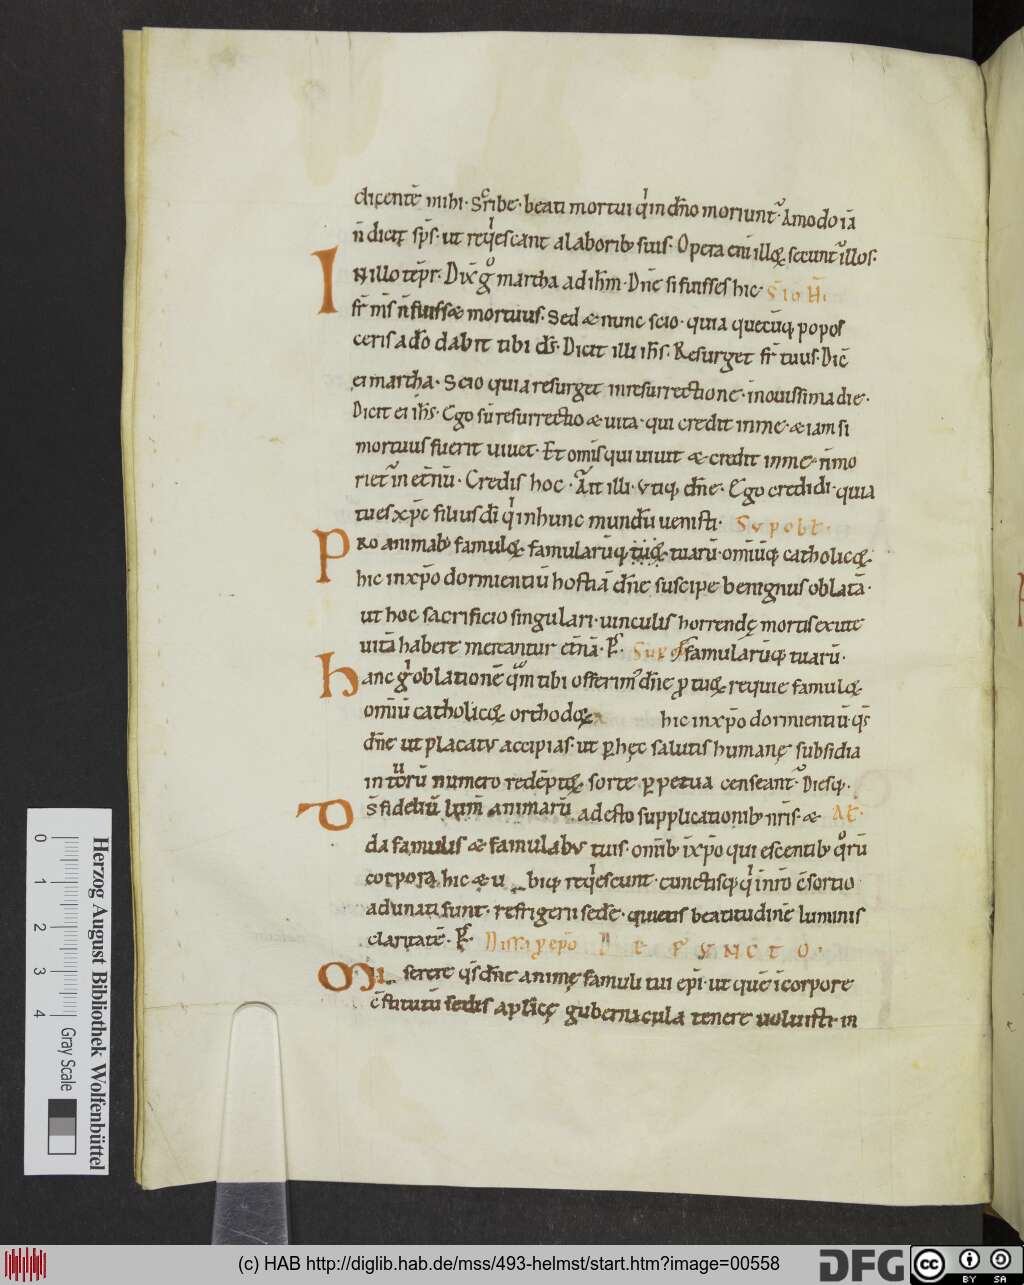 dicentē mihi. Scribe. beati mortui qͥ in dn̄o moriunt᷑. Amodo iā
n̄ dicit sp̄s. ut reqͥescant a laborib; suis. Opera enī illoꝝ secunt᷑ illos.
IN illo tēpr̄. Dix̄ gͦ martha ad ih̄m. Dn̄e si fuisses hic S̄ IOH̄.
fr̄ m̄s n̄ fuissæ mortuus. Sed æ nunc scio. quia quecūq; popos
ceris a dō dabit tibi ds̄. Dicit illi ih̄s. Resurget fr̄ tuus. Dic̄
ei martha. Scio quia resurget in resurrectione. in nouissima die.
Dicit ei ih̄s. Ego sū resurrectio æ uita. qui credit in me. æiam si
mortuus fuerit uiuet. Et om̄is qui uiuit æ credit in me. n̄ mo
riet᷑ in et̄nū. Credis hoc. Ait illi. Vtiq; dn̄e. Ego credidi. quia
tu es xp̄c filius dī qͥ in hunc mundū uenisti. Sup obt.
PRO animab; famuloꝝ. famularūq; tuaꝝ. tuarū. omīūq; catholicoꝝ.
hic in xp̄o dormientiū hostiā dn̄e suscipe benignus oblatā.
ut hoc sacrificio singulari. uinculis horrendę mortis exute
uitā habere mereantur et̄nā. P. famularūq; tuarū.
hanc gͥ oblationē qͫ tibi offerim᷒ dn̄e ꝓ tuoꝝ requie famuloꝝ.
omīū catholicoꝝ orthodoꝝ hic in xp̄o dormientiū. qs̄
dn̄e ut placatV accipias. ut ꝑ hęc salutis humanę subsidia
in tuorū numero redēptoꝝ sorte ꝑpetua censeant᷑. Diesq;.
Ds̄ fideliū lum̄ animarū adesto supplicationib; nr̄is. æ AĒ.
da famulis æ famulabV tuis. omīb; ī xp̄o quiescentib; qͦrū
corpora hic æ u biq; reqͥescunt. cunctisq; qͥ in xp̄o c̄sortio
adunati sunt. refrigerii sedē. quietis beatitudinē luminis
claritatē. P. FVNCTO.
M serere qs̄ dn̄e animę famuli tui ep̄i. ut quē ī corpore
c̄stitutū sedis aplicę gubernacula tenere uoluisti. in
0 1 2 3 4
Gray Scale
Herzog August Bibliothek Wolfenbüttel
(c) HAB http://diglib.hab.de/mss/493-helmst/start.htm?image=00558
DFG
cc BY SA